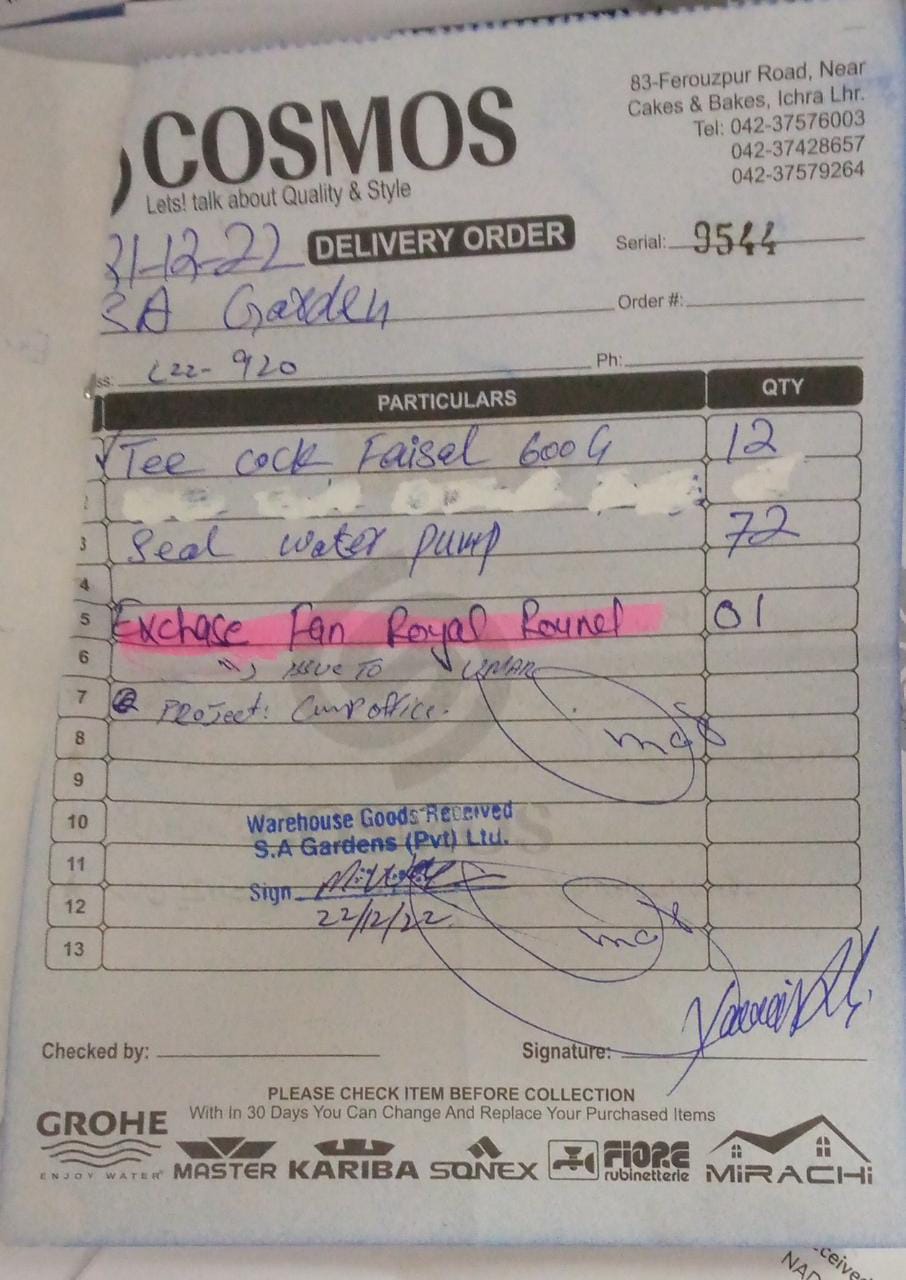 COSMOS
Lets! talk about Quality & Style
83-Ferouzpur Road, Near
Cakes & Bakes, Ichra Lhr.
Tel: 042-37576003
042-37428657
042-37579264
21-12-22 DELIVERY ORDER Serial: 9544
SA Garden Order #:
ss: L22-920 Ph:
PARTICULARS QTY
Tee cock Faisal 600G 12
2
3 Seal water pump 72
4
5 Exchase Fan Royal Round 01
6 issue to UMAR
7 Project: Camp office.
8
9
10 Warehouse Goods Received
S.A Gardens (Pvt) Ltd.
11
Sign
12 22/12/22
13
Checked by: Signature:
PLEASE CHECK ITEM BEFORE COLLECTION
With In 30 Days You Can Change And Replace Your Purchased Items
GROHE
ENJOY WATER
MASTER KARIBA SONEX FIORE rubinetterie MIRACHI